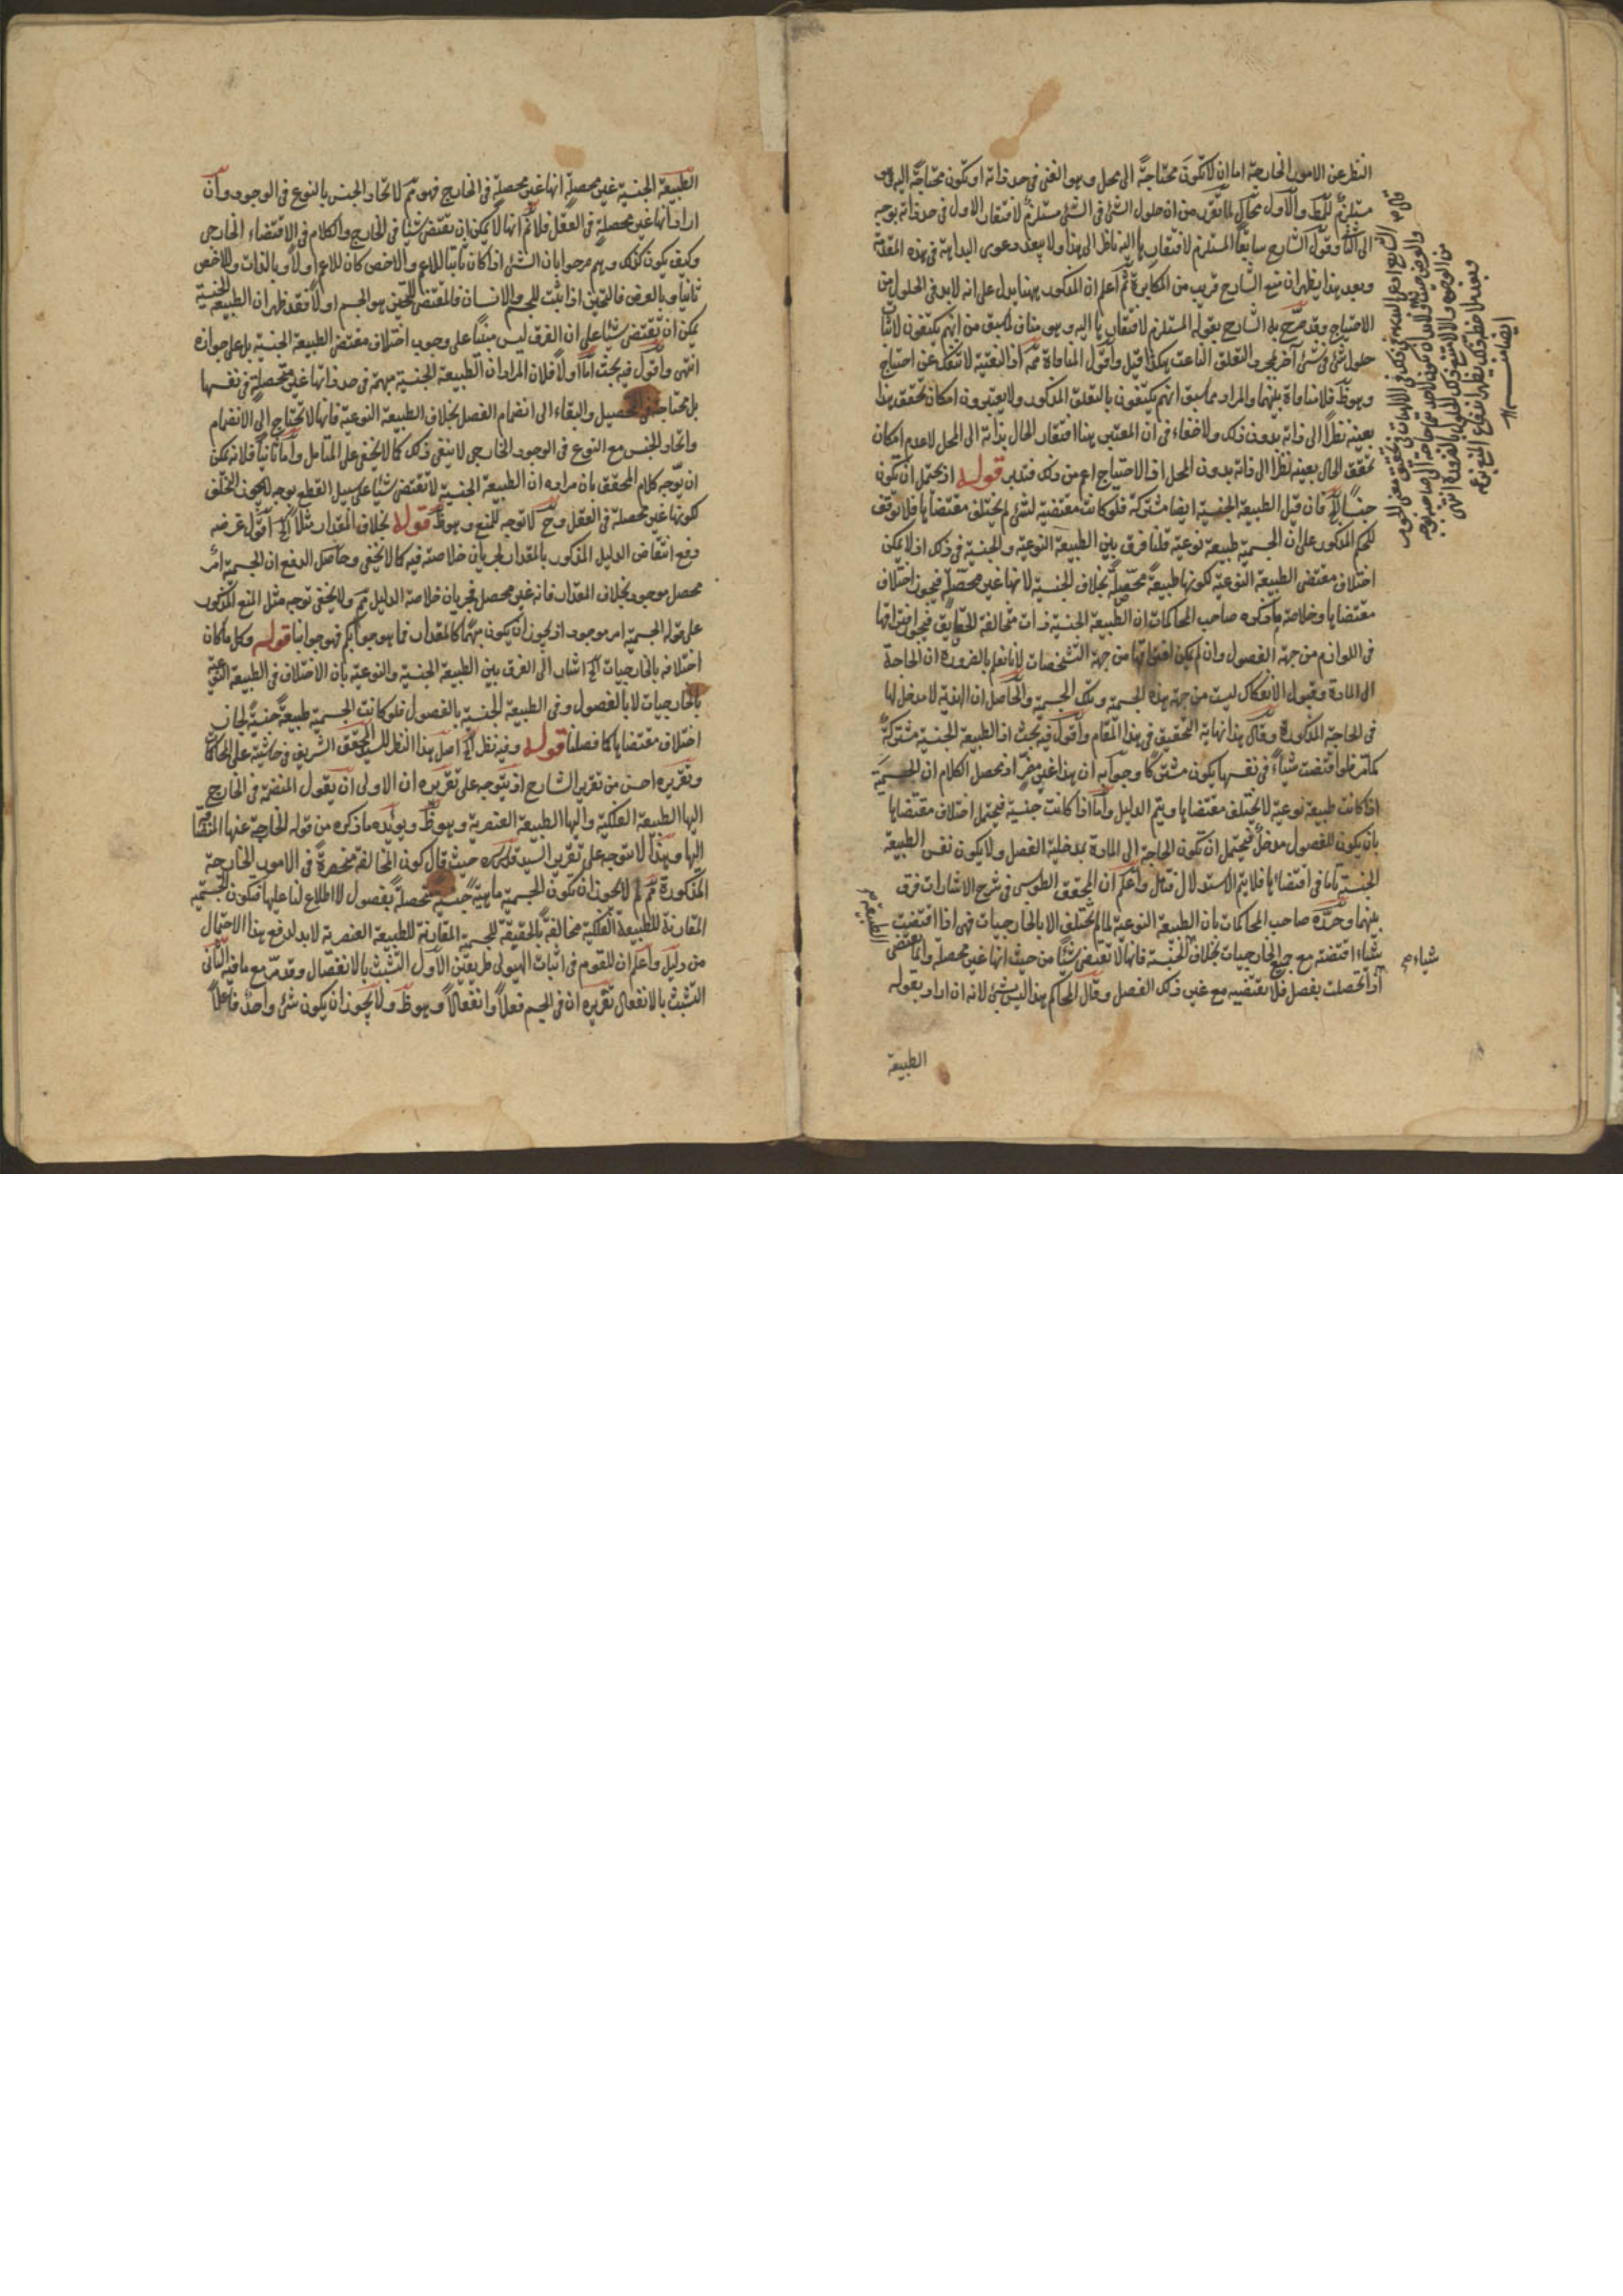 النظر عن الامور الخارجة اما ان لا تكون محتاجة الى محل وهو الغنى فى حد ذاته او تكون محتاجة اليه
مستلزم للمط والاول محال لما تقرر من ان حلول الشئ فى الشئ مستلزم لافتقار الاول فى حد ذاته بوجه
الى الثانى وقول الشارح سابقا المستلزم لافتقارها اليه ناظر الى هذا ولا يبعد دعوى البداهة فى هذه المقدمة
وبعد هذا يظهر ان منع الشارح قريب من المكابرة ثم اعلم ان المذكور ههنا يدل على انه لا بد فى الحلول من
الاحتياج وقد صرح به الشارح بقوله المستلزم لافتقارها اليه وهو مناف لما سبق من انهم يكتفون لاثبات
حلول شئ فى شئ آخر بمجرد التعلق الناعت هكذا قيل واقول المنافاة ثم اذ البعتية لا تنفك عن احتياج
وهو ظ فلا منافاة بينهما والمراد مما سبق انهم يكتفون بالتعلق المذكور ولا يعتبرون امكان تحقق هذا
بعينه نظرا الى ذاته بدون ذلك ولا خفاء فى ان المعتبر هنا افتقار الحال بذاته الى المحل لا عدم امكان
تحقق الحال بعينه نظرا الى ذاته بدون المحل اذ الاحتياج اعم من ذلك فتدبر قوله اذ يحتمل ان تكون
جنسا الخ فان قيل الطبيعة الجنسية ايضا مشتركة فلو كانت مقتضية لشئ لم يختلف مقتضاها فلا توقف
للحكم المذكور على ان الجسمية طبيعة نوعية قلنا فرق بين الطبيعة النوعية والجنسية فى ذلك اذ لا يمكن
اختلاف مقتضى الطبيعة النوعية لكونها طبيعة محصلة بخلاف الجنسية لانها غير محصلة فيجوز اختلاف
مقتضاها وخلاصة ما ذكره صاحب المحاكمات ان الطبيعة الجنسية ذات متخالفة الحقايق فيجوز افتراقها
فى اللوازم من جهة الفصول وان لم يكن افتراقها من جهة التشخصات لانا نعلم بالضرورة ان الحاجة
الى المادة وقبول الانفكاك ليست من جهة هذه الجسمية وتلك الجسمية والحاصل ان الهذية لا مدخل لها
فى الحاجة المذكورة وقال هذا نهاية التحقيق فى هذا المقام واقول فيه بحث اذ الطبيعة الجنسية مشتركة
كما مر فلو اقتضت شيئا فى نفسها يكون مشتركا وجوابه ان هذا غير مضر اذ محصل الكلام ان الجسمية
اذا كانت طبيعة نوعية لا يختلف مقتضاها ويتم الدليل واما اذا كانت جنسية فيحتمل اختلاف مقتضاها
بان يكون للفصول مدخل فيحتمل ان تكون الحاجة الى المادة بمدخلية الفصل ولا يكون نفس الطبيعة
الجنسية تاما فى اقتضائها فلا يتم الاستدلال فتأمل واعلم ان المحقق الطوسى فى شرح الاشارات فرق
بينهما وحرره صاحب المحاكمات بان الطبيعة النوعية لما لم تختلف الا بالخارجيات فهى اذا اقتضت
شيئا اقتضته مع جميع الخارجيات بخلاف الجنسية فانها لا تقتضى شيئا من حيث انها غير محصلة وانما تقتضى
اذا تحصلت بفصل فلا تقتضيه مع غير ذلك الفصل وقال المحاكم هذا ليس بشئ لانه ان اراد بقوله
الطبيعة
الطبيعة الجنسية غير محصلة انها غير محصلة فى الخارج فهو ثم لاتحاد الجنس بالنوع فى الوجود وان
اراد انها غير محصلة فى العقل فلا ثم انها لا يمكن ان تقتضى شيئا فى الخارج والكلام فى الاقتضاء الخارجى
وكيف يكون كذلك وهم صرحوا بان الشئ اذا كان ثابتا للاعم والاخص كان للاعم اولا وبالذات وللاخص
ثانيا وبالعرض فالتحيز اذا يثبت للجسم والانسان فالمقتضى للتحيز هو الجسم اولا فقد ظهر ان الطبيعة الجنسية
يمكن ان تقتضى شيئا على ان الفرق ليس مبنيا على وجوب اختلاف مقتضى الطبيعة الجنسية بل على جوازه
انتهى واقول فيه بحث اما اولا فلان المراد ان الطبيعة الجنسية مبهمة فى حد ذاتها غير متحصلة فى نفسها
بل محتاجة فى التحصيل والبقاء الى انضمام الفصل بخلاف الطبيعة النوعية فانها لا تحتاج الى الانضمام
واتحاد الجنس مع النوع فى الوجود الخارجى لا ينفى ذلك كما لا يخفى على المتأمل واما ثانيا فلانه يمكن
ان يوجه كلام المحقق بان مراده ان الطبيعة الجنسية لا تقتضى شيئا على سبيل القطع بوجه لا يجوز التخلف
لكونها غير محصلة فى العقل وح لا توجه للمنع وهو ظ قوله بخلاف المقدار مثلا الخ اقول غرضه
دفع انتقاض الدليل المذكور بالمقدار لجريان خلاصته فيه كما لا يخفى وحاصل الدفع ان الجسمية امر
محصل موجود بخلاف المقدار فانه غير محصل فجريان خلاصة الدليل ثم ولا يخفى توجه مثل المنع المذكور
على قوله الجسمية امر موجود اذ يجوز ان يكون مبهما كالمقدار فما هو جوابكم فهو جوابنا قوله وكل ما كان
اختلافه بالخارجيات الخ اشار الى الفرق بين الطبيعة الجنسية والنوعية بان الاختلاف فى الطبيعة النوعية
بالخارجيات لا بالفصول وفى الطبيعة الجنسية بالفصول فلو كانت الجسمية طبيعة جنسية لجاز
اختلاف مقتضاها كما فصلنا قوله وفيه نظر الخ اصل هذا النظر للسيد المحقق الشريف فى حاشيته على المحاكمات
وتقريره احسن من تقرير الشارح اذ يتوجه على تقريره ان الاولى ان يقول المنضمة فى الخارج
اليها الطبيعة الفلكية واليها الطبيعة العنصرية وهو ظ ويؤيده ما ذكره من قوله الخارجة عنها المنضمة
اليها وهذا لا يتوجه على تقرير السيد قدس سره حيث قال كون المخالفة منحصرة فى الامور الخارجة
المذكورة ثم لم لا يجوز ان تكون الجسمية ماهية جنسية تحصلة بفصول لا اطلاع لنا عليها فتكون الجسمية
المقارنة للطبيعة الفلكية مخالفة بالحقيقة للجسمية المقارنة للطبيعة العنصرية لا بد لدفع هذا الاحتمال
من دليل واعلم ان للقوم فى اثبات الهيولى طريقين الاول التشبث بالانفصال وقد مر مع ما فيه الثانى
التشبث بالانفعال تقريره ان فى الجسم فعلا وانفعالا وهو ظ ولا يجوز ان يكون شئ واحد فاعلا